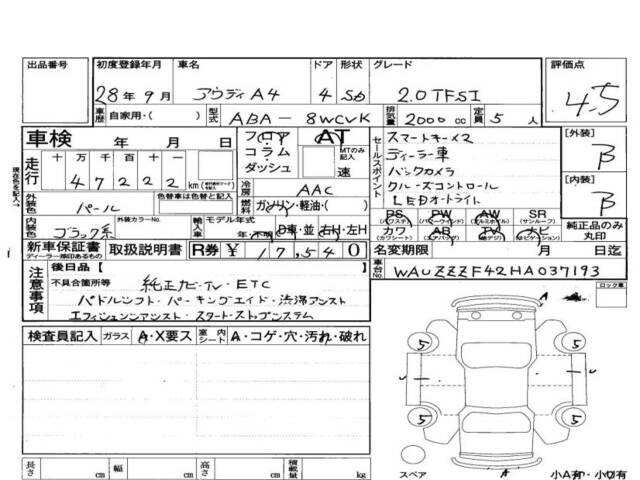 出品番号 初度登録年月 車名 ドア 形状 グレード 評価点
28年9月 アウディA4 4 SD 2.0TFSI 4.5
車歴 自家用・( ) 型式 ABA-8WCVK 排気量 2000cc 定員 5人
車検 年 月 日 フロア・コラム・ダッシュ AT MTのみ記入 速
セールスポイント スマートキー×2
ディーラー車
バックカメラ
クルーズコントロール
LEDオートライト
[外装] B
[内装] B
現在色を記入→
走行 十 万 千 百 十 一
47222km
冷房 AAC
外装色 パール 色替車は色替と記入 燃料 ガソリン・軽油・( )
内装色 ブラック系 外装カラーNo. 輸入車 モデル年式 年・不明 D車・並 右H・左H
PS PW AW SR
(パワステ) (パワーウインド) (アルミホイル) (サンルーフ)
カワ AB TV ナビ
(カワシート) (エアバッグ) (ナビゲーション)
純正品のみ丸印
新車保証書 取扱説明書 R券 ¥17,540 名変期限 月 日迄
ディーラー捺印あるもの
車台No. WAUZZZF42HA037193
注意事項 後日品[ ]
不具合箇所等 純正ナビ・TV・ETC
パドルシフト・パーキングエイド・渋滞アシスト
エフィシェンシーアシスト・スタートストップシステム
ロック車
検査員記入 ガラス A・X要ス 室内シート A・コゲ・穴・汚れ・破れ
5 5
5 5
A
スペア
A
長さ cm 幅 cm 高さ cm 積載量 kg
小A有・小U有